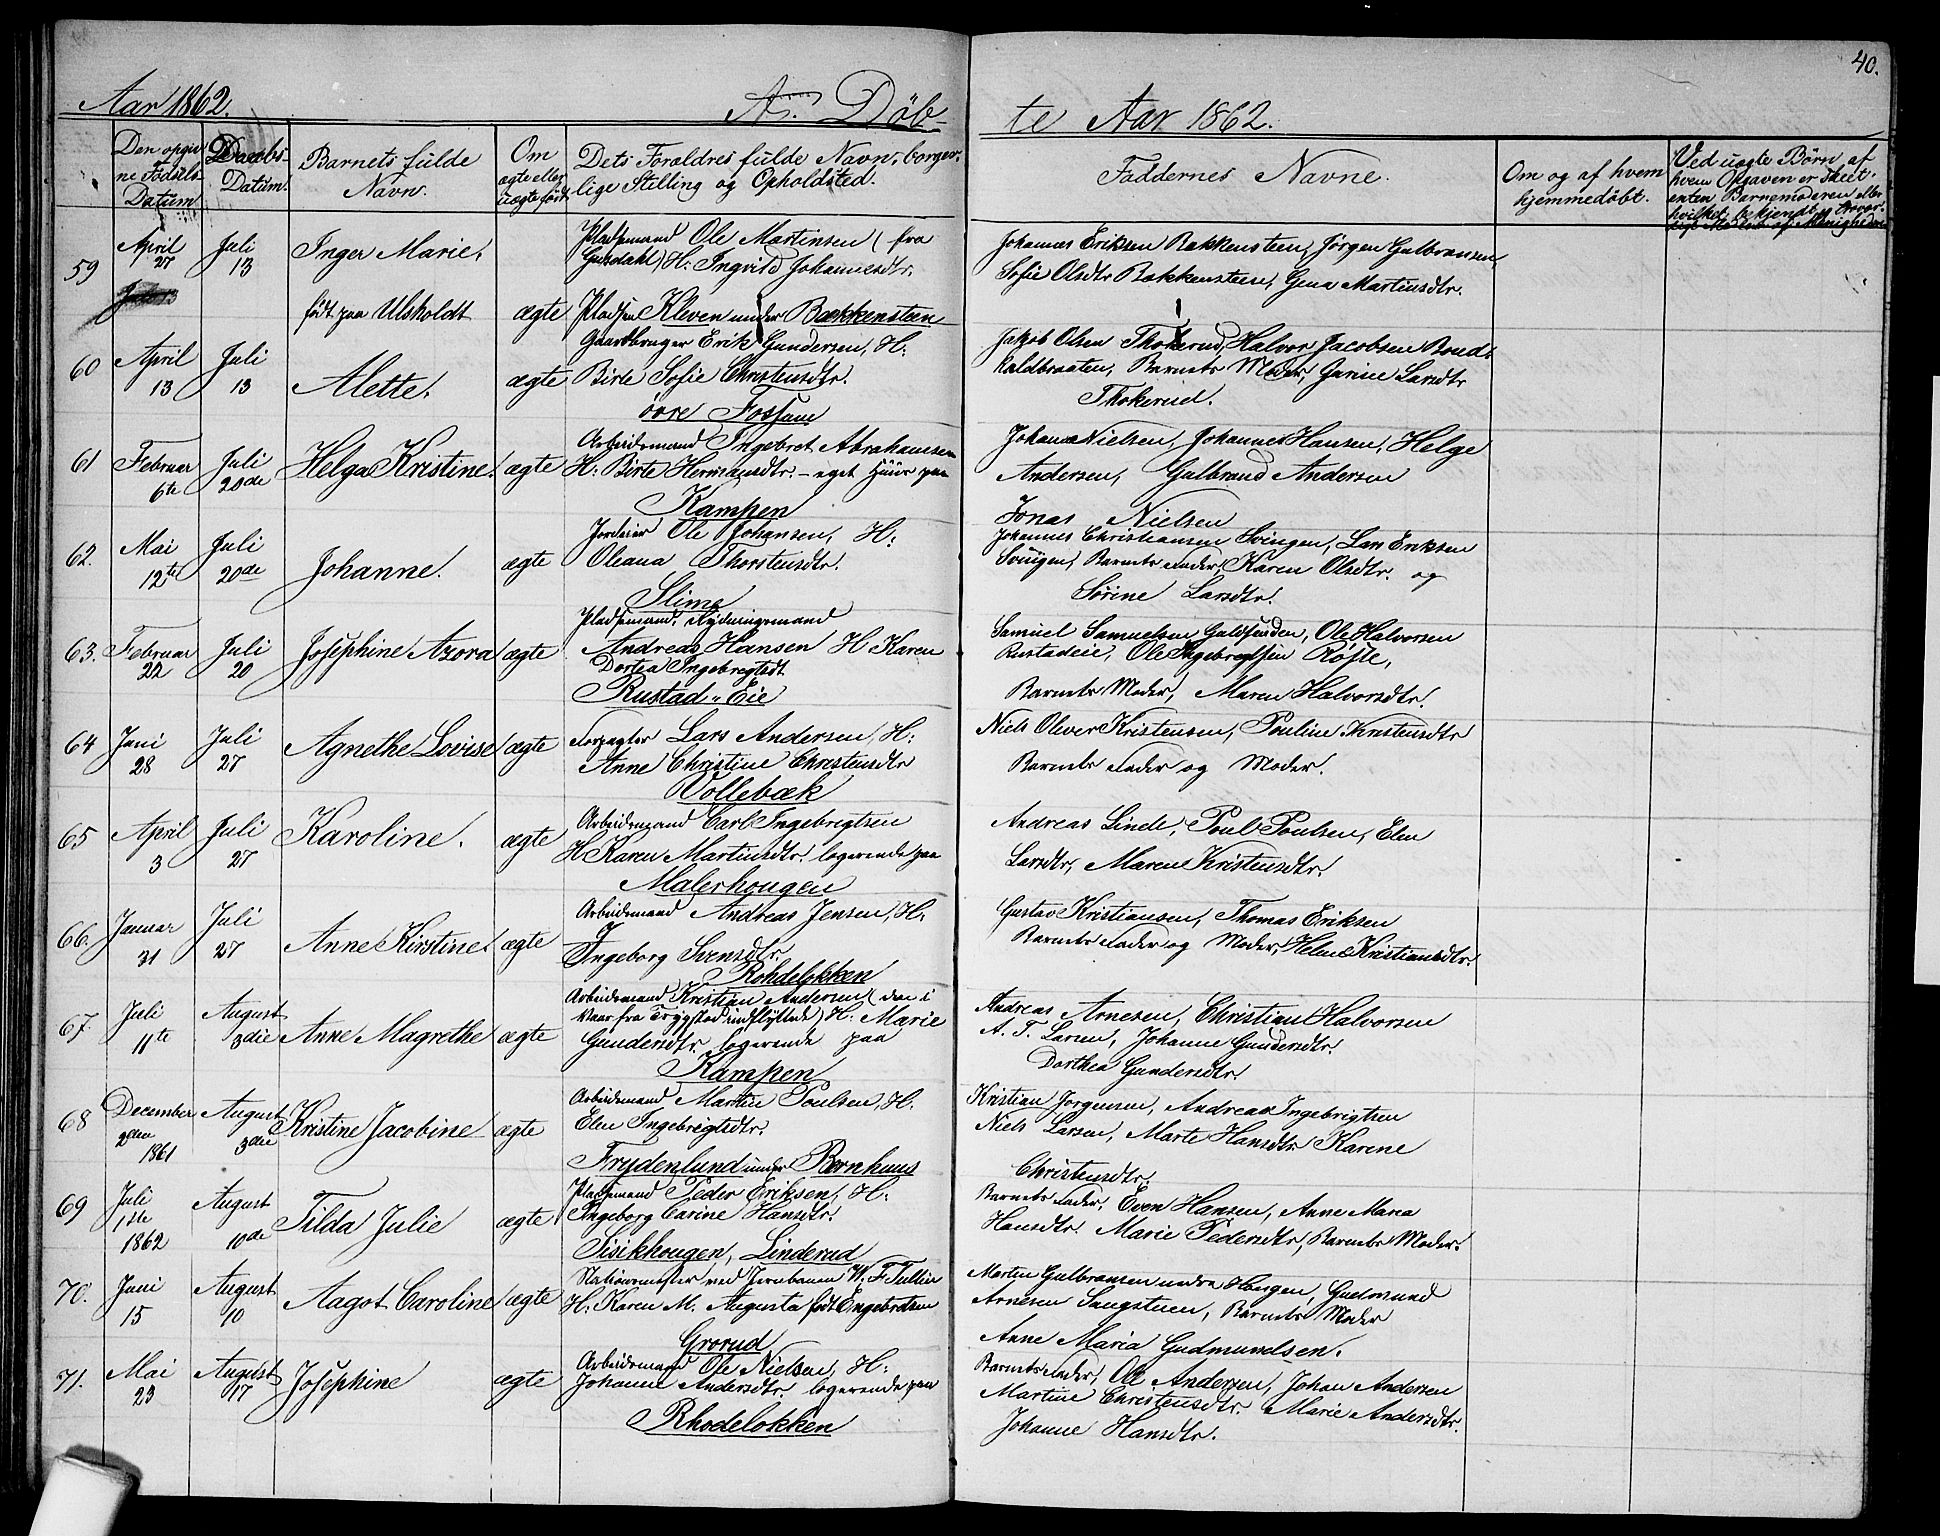 40.
Aar 1862. A. Döb-
te Aar 1862.
Den opgiv
ne Födsels-
Datum
Daabs-
Datum.
Barnets fulde
Navn.
Om
ægte eller
uægte född
Dets Foraldres fulde Navn, borger-
lige Stilling og Opholdsted.
Faddernes Navne.
Om og af hvem
hjemmedöbt.
Ved uægte Börn af
hvem Opgaven er skeet,
enten Barnemoderen eller
hvilket bekjendt og trovær-
digt Medlem af Menigheden
59
April
27
Juli
13
Inger Marie,
födt paa Ulsholdt
ægte
Pladsmand Ole Martinsen (fra
Gusdahl) H: Ingvild Johannesdtr.
Pladsen Kleven under Bækkensteen
Johannes Eriksen Bakkensteen, Jörgen Gulbransen,
Sofie Olsdtr Bakkensteen, Gena Martinsdtr.
60
April
13
Juli
13
Alette.
ægte
Gaardbruger Erik Gundersen, H:
Birte Sofie Christensdtr.
övre Fossum
Jakob Olsen Thokerud, Halvor Jacobsen Bond-
kaldbraaten, Barnets Moder, Gurine Larsdtr
Thokerud.
61
Februar
6te
Juli
20de
Helga Kristine.
ægte
Arbeidsmand Ingebret Abrahamsen
H: Birte Hermansdtr. - eget Huus paa
Kampen
Johan Nielsen, Johannes Hansen, Helge
Andersen, Gulbrand Andersen
Jonas Nielsen
62.
Mai
12te
Juli
20de
Johanne.
ægte
Jordeier Ole Johansen, H:
Oleana Thorstensdtr.
Slime
Johannes Christiansen Svingen, Lars Eriksen
Svingen, Barnets Fader, Karen Olsdtr. og
Sörine Larsdtr.
63.
Februar
22
Juli
20
Josephine Azora
ægte
Pladsmand, Rydningsmand
Andreas Hansen H Karen
Dortea Ingebregtsdt
Rustad-Eie
Samuel Samuelsen, Ole Halvorsen
Rustadeie, Ole Ingebregtsen Röste,
Barnets Moder, Maren Halvorsdtr.
64
Juni
28
Juli
27
Agnethe Lovise
ægte
Forpagter Lars Andersen, H:
Anne Christine Christensdtr
Vollebæk
Niels Oliver Kristensen, Pouline Kristensdtr
Barnets Fader og Moder.
65
April
3
Juli
27
Karoline.
ægte
Arbeidsmand Carl Ingebrigtsen
H Karen Martinsdtr. logerende paa
Malerhougen
Andreas Linde, Poul Poulsen, Elen
Larsdtr, Maren Kristensdtr.
66.
Januar
31
Juli
27
Anne Kirstine.
ægte
Arbeidsmand Andreas Jensen, H:
Ingeborg Svensdtr.
Rohdelökken
Gustav Kristiansen, Thomas Eriksen
Barnets Fader og Moder, Helene Kristiansdtr.
67.
Juli
11te
August
3die
Anne Magrethe
ægte
Arbeidsmand Kristian Andersen (den i
Vaar fra Trygstad indflyttede) H: Marie
Gundersdtr. logerende paa
Kampen
Andreas Arnesen, Christian Halvorsen
A. T. Larsen, Johanne Gundersdtr.
Dorthea Gundersdtr.
68
December
2den
1861
August
3die
Kristine Jacobine
ægte
Arbeidsmand Martin Poulsen, H.
Elen Ingebregtsdtr.
Frydenlund under Börnhuus
Kristian Jörgensen, Andreas Ingebrigtsen
Niels Larsen, Marte Hansdtr Karene
Christensdtr.
69
Juli
1ste
1862
August
10de
Tilda Julie
ægte
Pladsmand Peder Eriksen, H:
Ingeborg Carine Hansdtr.
Sisikhougen, Linderud
Barnets Fader, Even Hansen, Anne Maria
Hansdtr. Marie Pedersdtr, Barnets Moder.
70.
Juni
15
August
10
Aagot Caroline
ægte
Stationsmester ved Jernbanen W. F. Tullin
H: Karen M. Augusta födt Engebretsen
Grorud
Martin Gulbransen nedre Haugen, Gudmund
Arnesen Saugstuen, Barnets Moder
Anne Maria Gudmundsen.
71.
Mai
23
August
17
Josephine
ægte
Arbeidsmand Ole Nielsen, H:
Johanne Andersdtr. logerende paa
Rhodelökken
Barnets Fader, Ole Andersen, Johan Andersen
Martine Christensdtr. Marie Andersdtr.
Johanne Hansdtr.